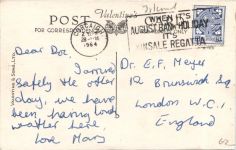 Valentine's Island
POST
FOR CORRESPONDENCE
1964
WHEN IT'S
AUGUST BANK HOLIDAY
IT'S
KINSALE REGATTA
Dear Doc
I arrived
safely the other
day, we have
been having lovely
weather here,
Love Mary
Dr. E. F. Meyer
12 Brunswick Sq
London W.C.1,
England
VALENTINE & SONS, LTD.
62